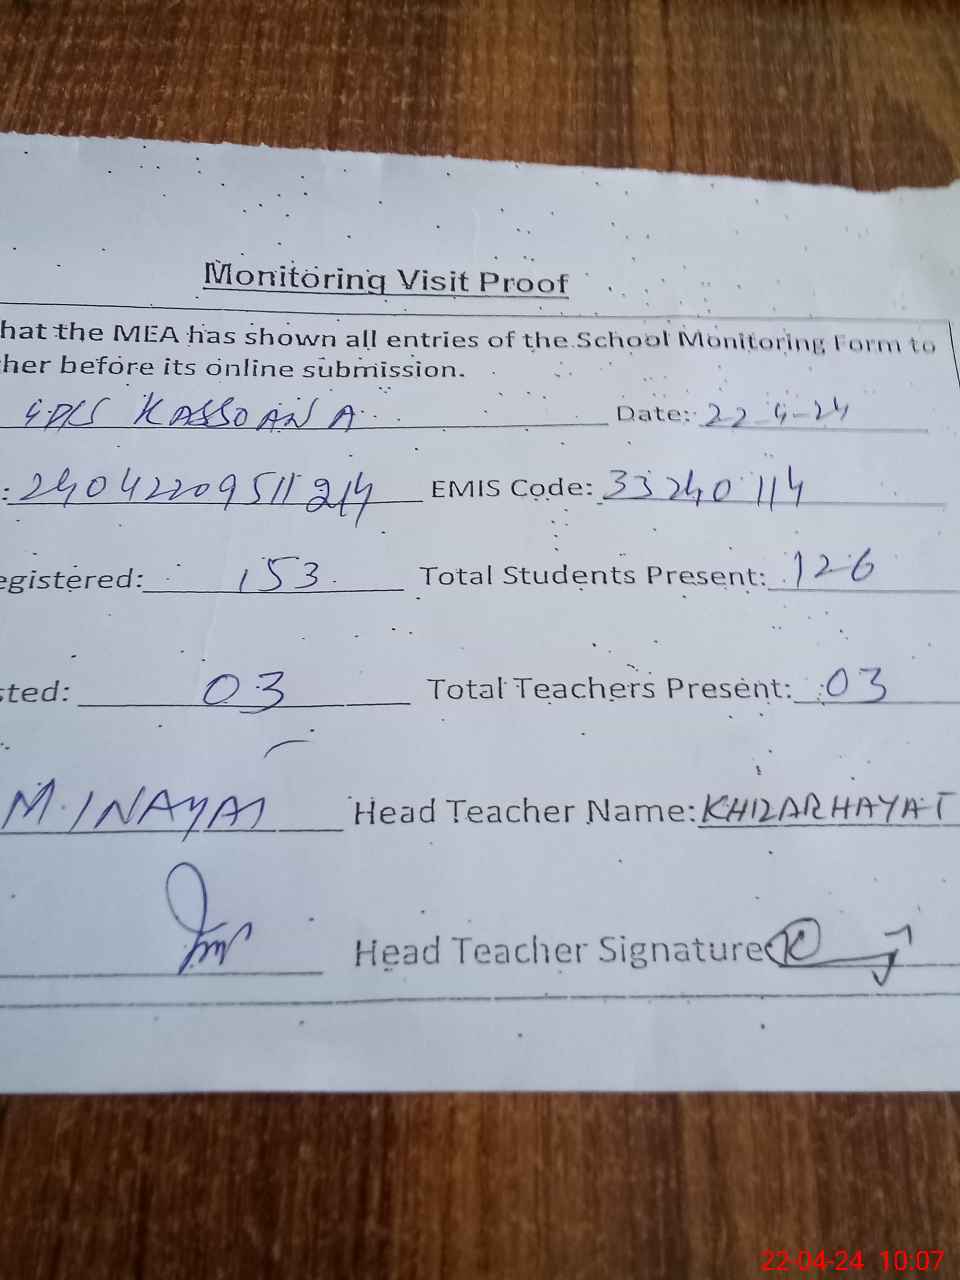 Monitoring Visit Proof
hat the MEA has shown all entries of the School Monitoring Form to
her before its online submission.
GPS KASSOANA Date: 22-4-24
: 24042209511214 EMIS Code: 33240114
egistered: 153 Total Students Present: 126
sted: 03 Total Teachers Present: 03
M. INAYAT Head Teacher Name: KHIZAR HAYAT
Head Teacher Signature
22-04-24 10:07